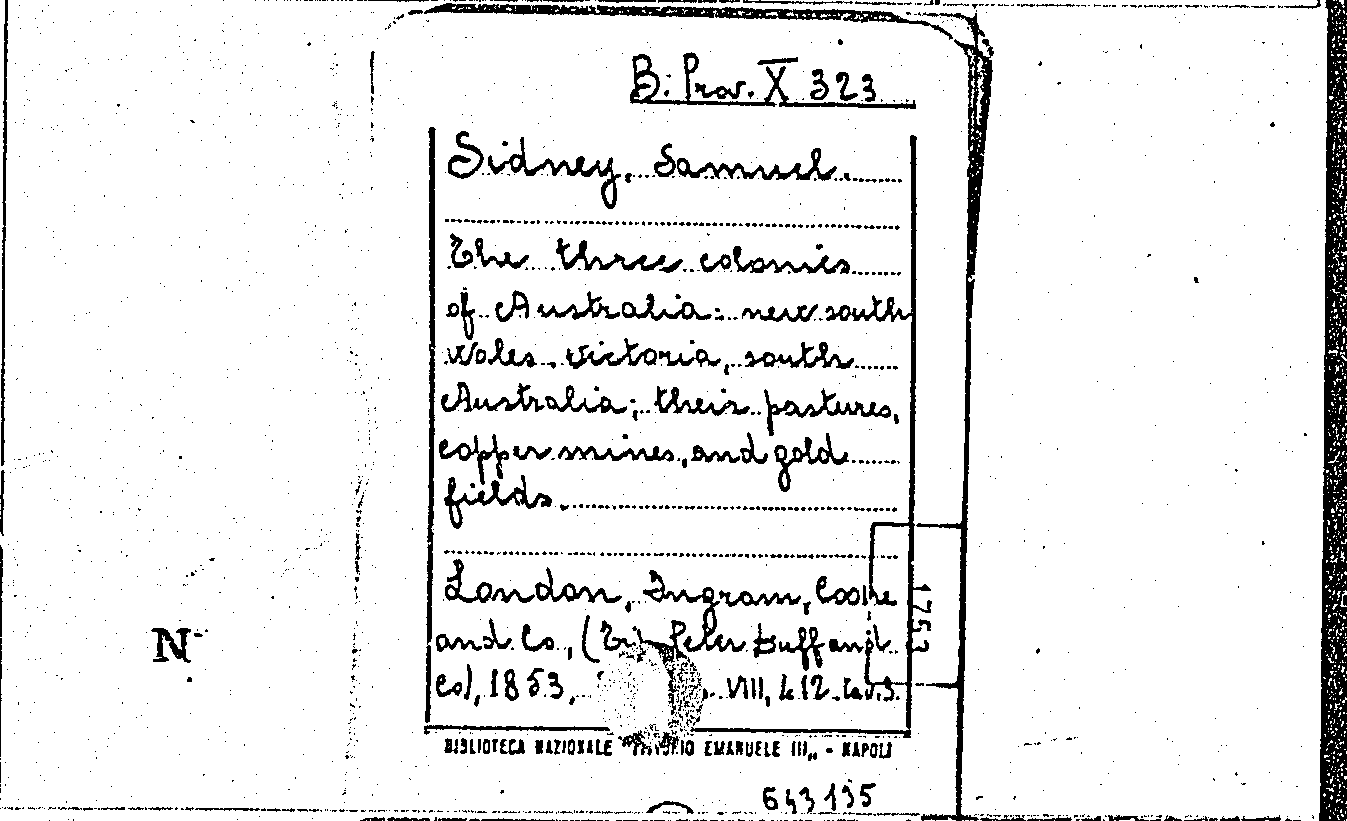 B. Prov. X 323
Sidney, Samuel.
The three colonies
of Australia: new south
Wales, Victoria, south
Australia; their pastures,
copper mines, and gold
fields.
London, Ingram, Cooke
and Co., ( Peter Duff and
Co), 1853, VIII, 412. tav. 3.
1753
BIBLIOTECA NAZIONALE EMANUELE III,, - NAPOLI
643135
N